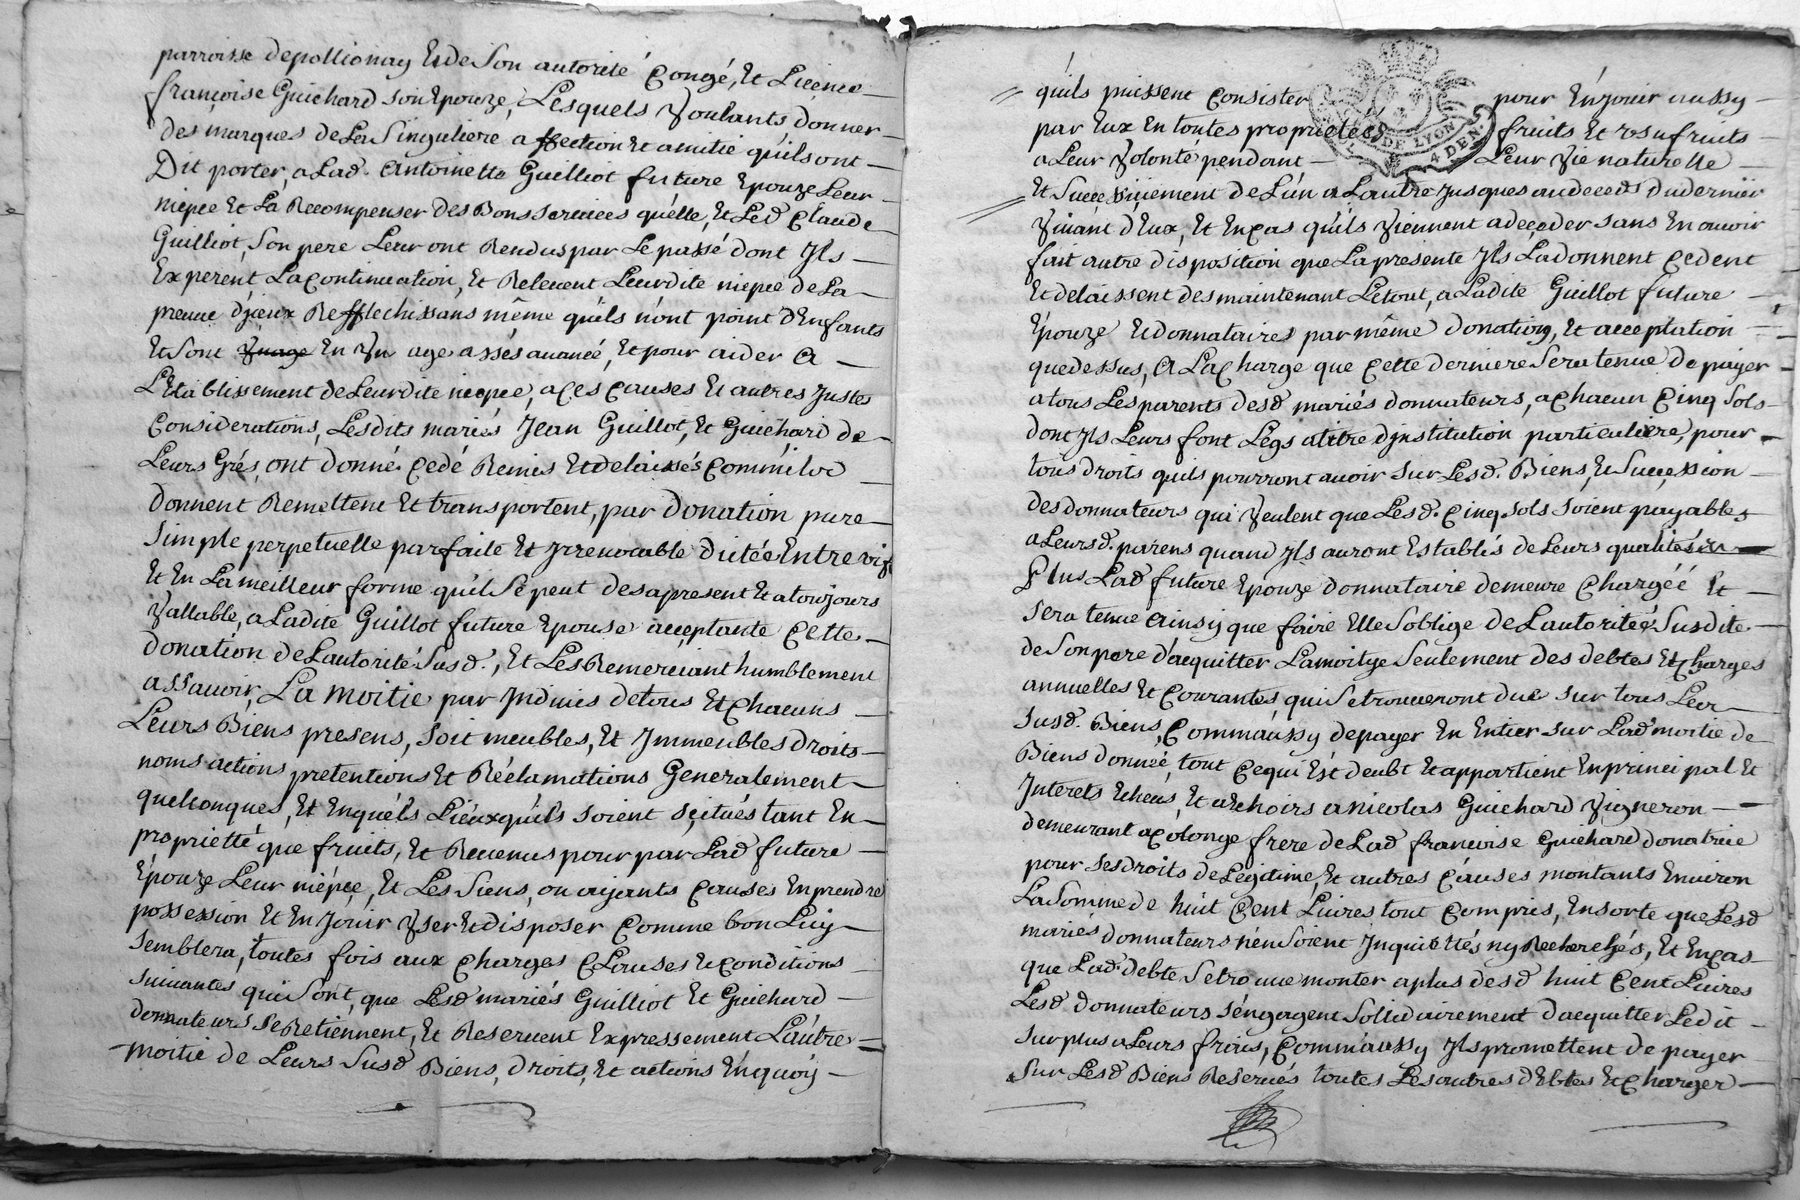 parroisse depollionay Et de Son autorité Congé, Et Licence
françoise Guichard son Epouze, Lesquels Voulants donner
des marques de La Singuliere affection Et amitié quils ont
Dit porter, a Lad. Antoinette Guilliot future Epouze Leur
niepce Et La Recompenser des Bons services quelle, Et Led Claude
Guilliot, Son pere Leur ont Rendus par Le passé dont Jls
Experent La Continuation, Et Relevent Leurdite niepce de La
preuve d'jceux Refflechissans même quils n'ont point d'Enfants
Et Sont En Vn age assés avancé, Et pour aider a
L'Etablissement de Leurdite niepce, a Ces Causes Et autres Justes
Considerations, Lesdits mariés Jean Guillot, Et Guichard de
Leurs Grés, ont donné Cedé Remis Et delaissés Comm'ils
donnent Remettent Et transportent, par donation pure
Simple perpetuelle parfaite Et Jrrevocable dittée Entre vifs
Et En La meilleur forme quil Se peut des apresent Et a toujours
Vallable, a Ladite Guillot future Epouse acceptante Cette
donation de L'autorité Susd., Et Les Remerciant humblement
assavoir, La moitie par Jndivis de tous Et Chacuns
Leurs Biens presens, Soit meubles, Et Jmmeubles droits
noms actions pretentions Et Réclamations Generalement
quelconques, Et En quels Liéux quils soient scitués tant En
proprietté que fruits, Et Revenus pour par Lad future
Epouze Leur niépce, Et Les Siens, ou aijants Causes En prendre
possession Et En Jouir Vser Et disposer Comme bon Luy
Semblera, toutes fois aux Charges Clauses Et Conditions
Suivantes qui Sont, que Lesd mariés Guilliot Et Guichard
donnateurs se Retiennent, Et Reservent Expressement L'autre
moitié de Leurs Susd Biens, droits, Et actions En quoy
quils puissent Consister pour En jouir aussy
par Eux En toutes proprietés fruits Et Vsufruits
a Leur Volonté pendant Leur Vie naturelle
Et Successivement de L'un a L'autre Jusques au deceds du dernier
Vivant d'Eux, Et En Cas quils Viennent a deceder sans En avoir
fait autre disposition que La presente Jls La donnent Cedent
Et delaissent des maintenant Le tout, a Ladite Guillot future
Epouze Et donnataires par même donation, Et acceptation
que dessus, a La Charge que Cette derniere Sera tenue de payer
a tous Les parents desd mariés donnateurs, a Chacun Cinq Sols
dont Jls Leurs font Legs a titre d'jnstitution particuliere, pour
tous droits quils pourront avoir sur Lesd. Biens, Et Succession
des donnateurs qui Veulent que Lesd. Cinq sols soient payables
a Leursd. parens quand Jls auront Establis de Leurs qualités
Plus Lad future Epouze donnataire demeure Chargéé Et
sera tenue ainsy que faire Elle S'oblige de L'autorité Susdite
de Son pere d'acquitter La moitye Seulement des debtes Et Charges
annuelles Et Courantes, qui Se trouveront due sur tous Leur
Susd. Biens, Comm'aussy de payer En Entier sur Lad moitie de
Biens donnée tout Ce qui Est deubt Et appartient En principal Et
Jnterets Echeus, Et a Echoirs a nicolas Guichard Vigneron
demeurant a Colonge frere de Lad françoise Guichard donatrice
pour ses droits de Legitime, Et autres Causes montants Environ
La Somme de huit Cent Livres tout Compris, En sorte que Lesd
mariés donnateurs n'en Soient Jnquiettés ny Recherchés, Et En Cas
que Lad. debte Se trouve monter a plus desd huit Cent Livres
Lesd donnateurs s'engagent Sollidairement d'acquitter Ledit
surplus a Leurs frais, Comm'aussy Jls promettent de payer
sur Lesd Biens Reservés toutes Les autres dEbtes Et Charges
DE LYON
4 DEN